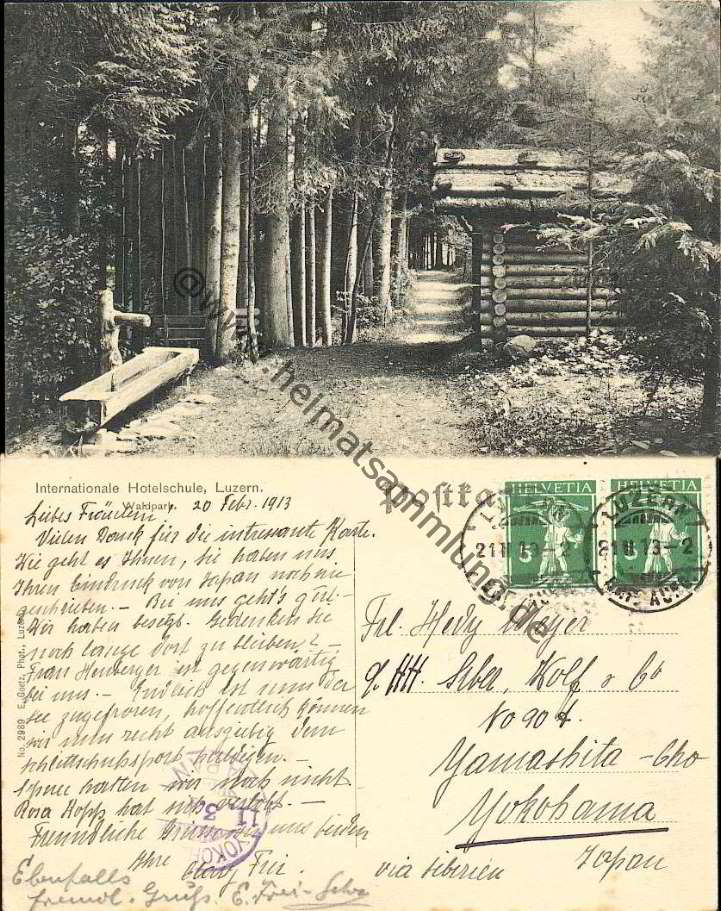 Internationale Hotelschule, Luzern.
Waldpark.
20 Febr. 1913
Liebes Fräulein!
Vielen Dank für die intressante Karte.
Wie geht es Ihnen, Sie haben uns
Ihren Eindruck von Japan noch nie
geschrieben. – Bei uns geht's gut.
Wir haben besetzt. Gedenken Sie
noch lange dort zu bleiben? –
Frau Henberger ist gegenwärtig
bei uns. – Endlich ist nun der
See zugefroren, hoffentlich können
wir nun recht ausgiebig dem
Schlittschuhsport huldigen. –
Schnee hatten wir noch nicht.
Rosa Hopp hat
Freundliche uns beiden
Ihre
Frei
Ebenfalls
freundl. Gruss. E. Frei-
No. 2989 E. Goetz, Phot., Luzern
Postka
HELVETIA HELVETIA
5 5
LUZERN
21 II 13 - 2
LUZERN
21 II 13 - 2
Frl. Hedy Meyer
HH. Siber, Wolf & Co
No 90 A.
Yamashita-Cho
Yokohama
via Siberien Japan
YOKOHAMA
JAPAN
11 3
@www.heimatsammlung.de